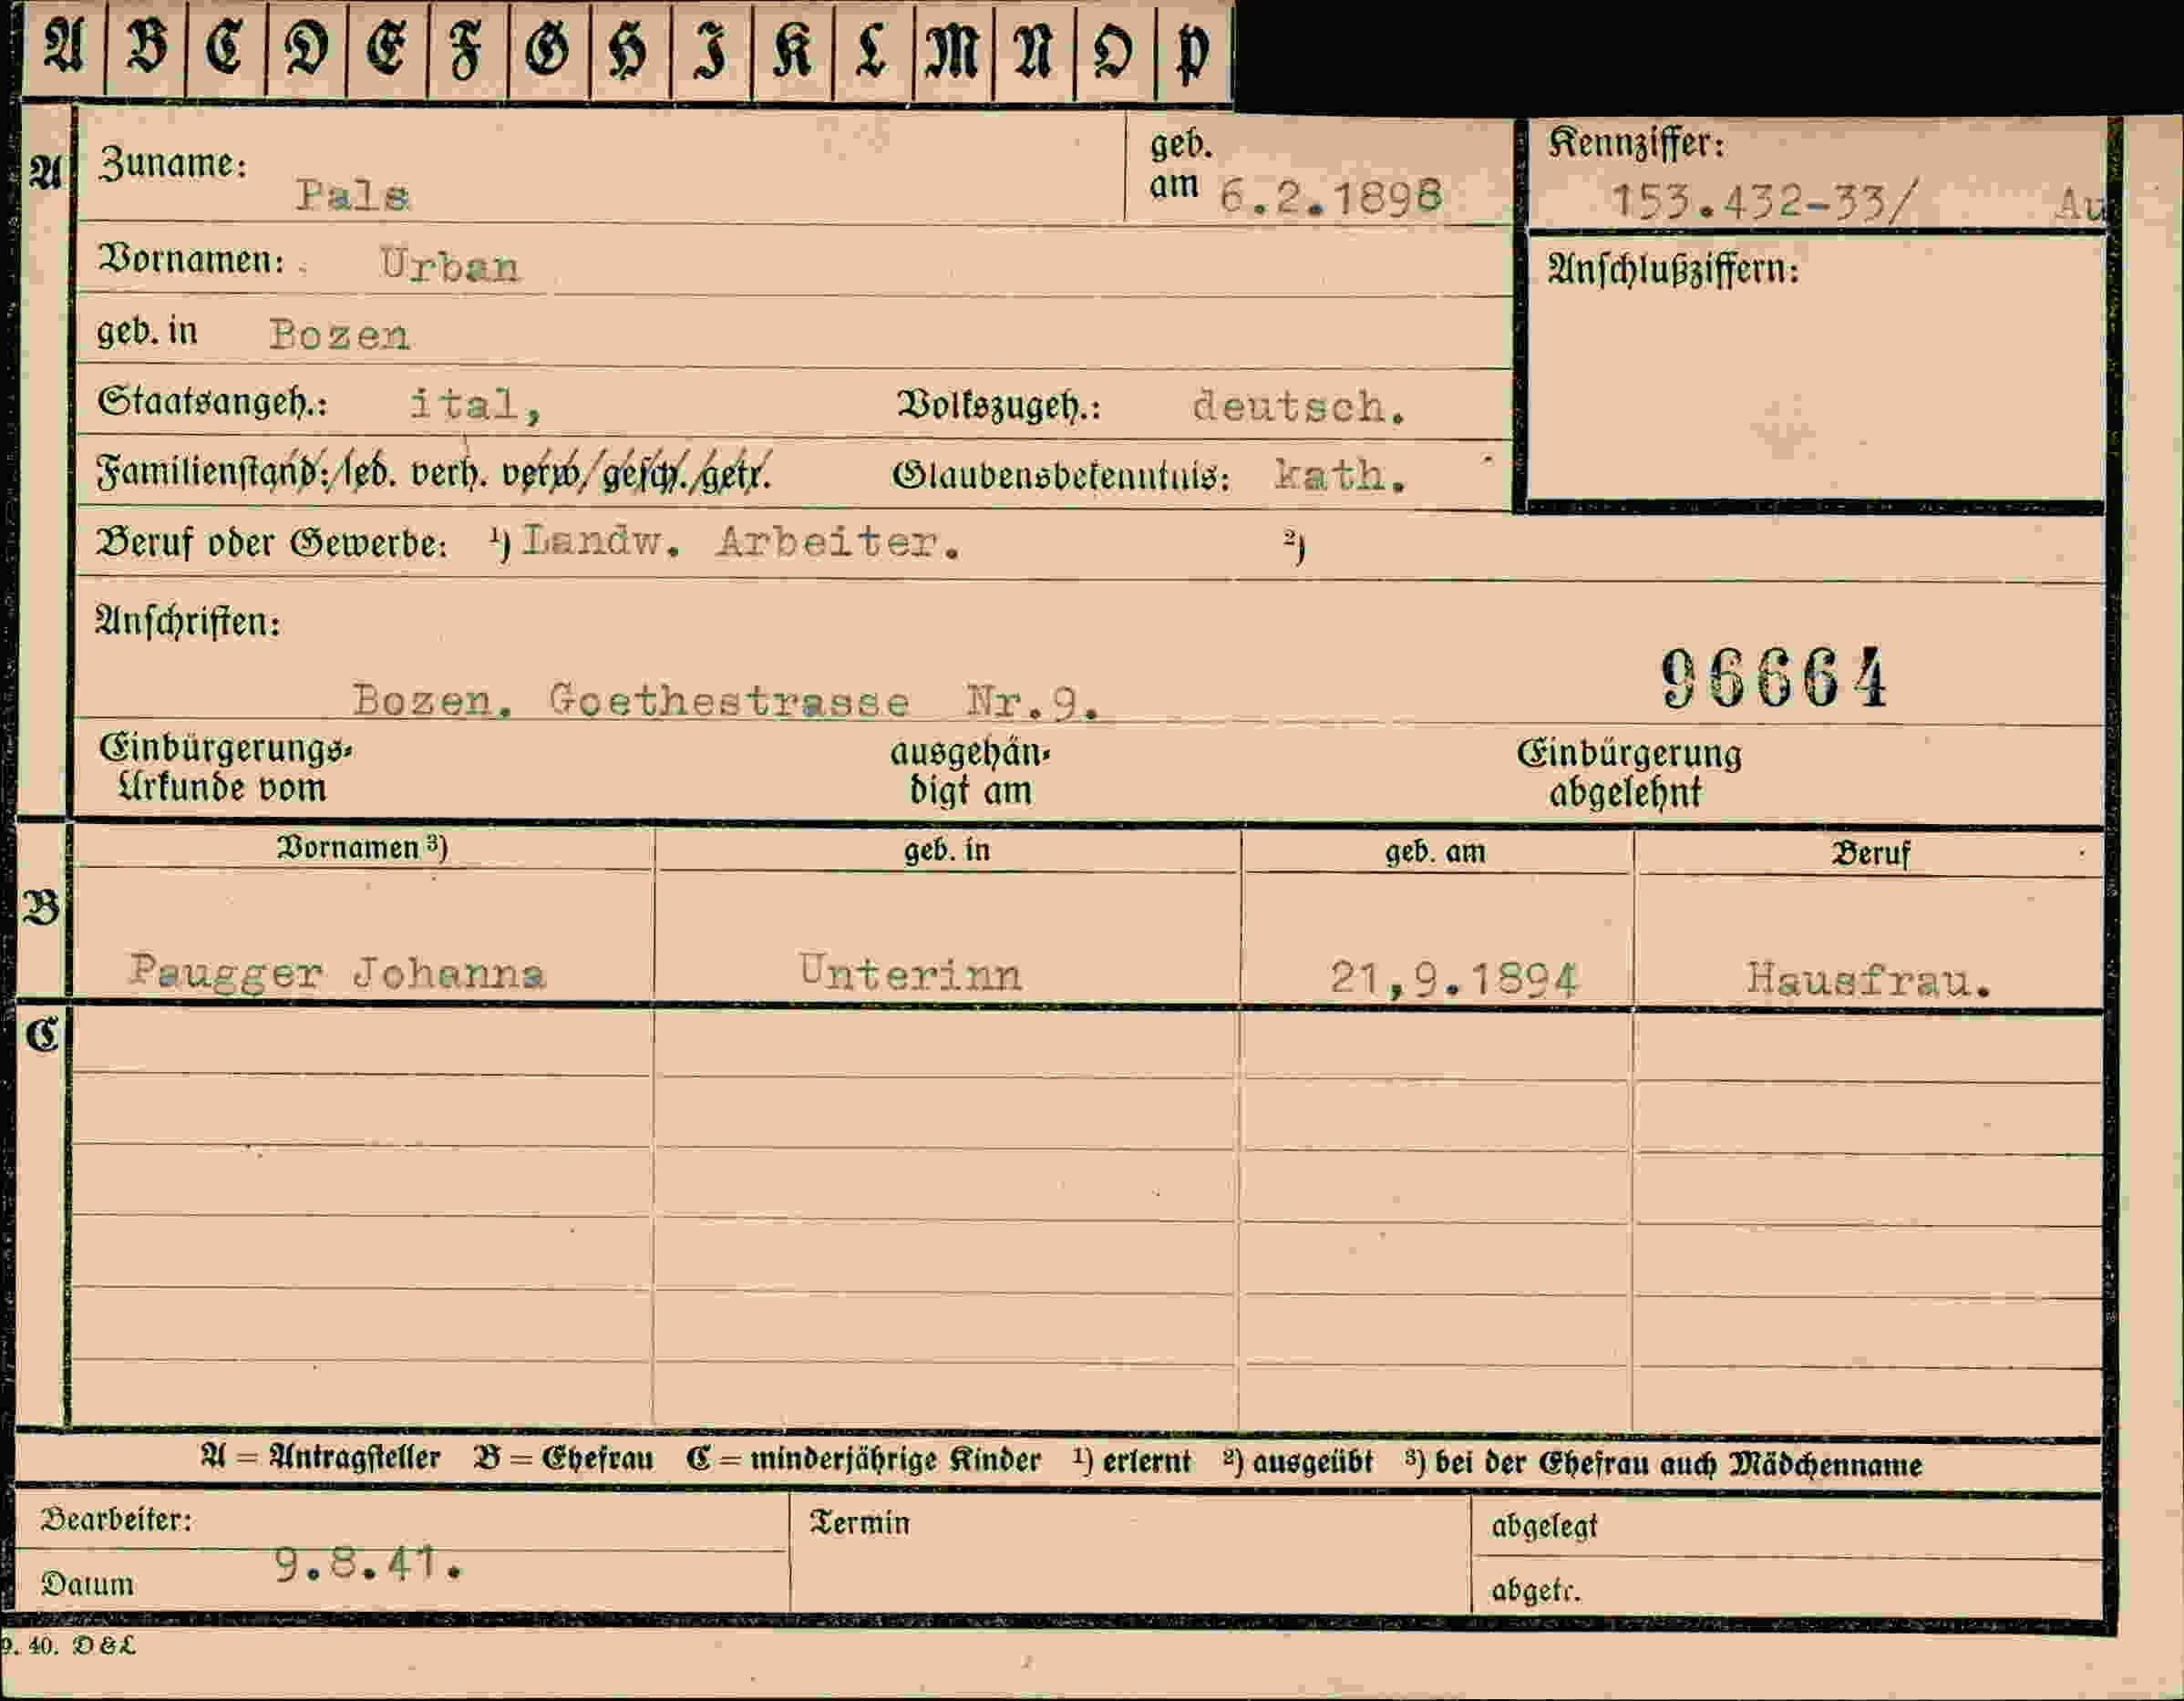 A B C D E F G H I K L M N O P
A Zuname: Pals geb. am 6.2.1898 Kennziffer: 153.432-33/ Au
Vornamen: Urban Anschlußziffern:
geb. in Bozen
Staatsangeh.: ital, Volkszugeh.: deutsch.
Familienstand: led. verh. verw. gesch. getr. Glaubensbekenntnis: kath.
Beruf oder Gewerbe: ¹) Landw. Arbeiter. ²)
Anschriften:
96664
Bozen. Goethestrasse Nr.9.
Einbürgerungs- ausgehän- Einbürgerung
Urkunde vom digt am abgelehnt
B Vornamen ³) geb. in geb. am Beruf
Paugger Johanna Unterinn 21,9.1894 Hausfrau.
C
A = Antragsteller B = Ehefrau C = minderjährige Kinder ¹) erlernt ²) ausgeübt ³) bei der Ehefrau auch Mädchenname
Bearbeiter: Termin abgelegt
9.8.41.
Datum abgetr.
9. 40. D & L